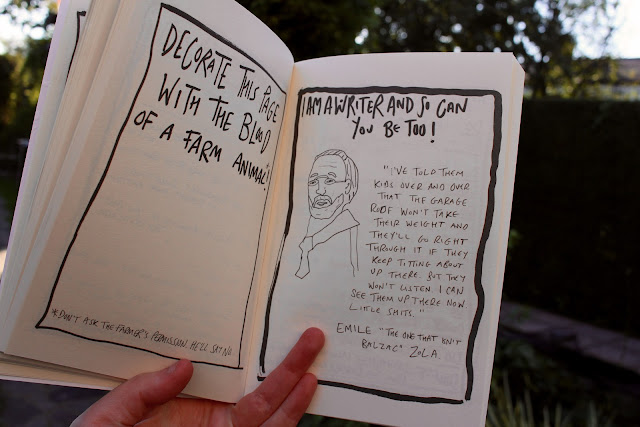 DECORATE THIS PAGE
WITH THE BLOOD
OF A FARM ANIMAL*
*DON'T ASK THE FARMER'S PERMISSION. HE'LL SAY NO.
I AM A WRITER AND SO CAN
YOU BE TOO!
"I'VE TOLD THEM
KIDS OVER AND OVER
THAT THE GARAGE
ROOF WON'T TAKE
THEIR WEIGHT AND
THEY'LL GO RIGHT
THROUGH IT IF THEY
KEEP TITTING ABOUT
UP THERE. BUT THEY
WON'T LISTEN. I CAN
SEE THEM UP THERE NOW.
LITTLE SHITS."
EMILE "THE ONE THAT ISN'T
BALZAC" ZOLA.